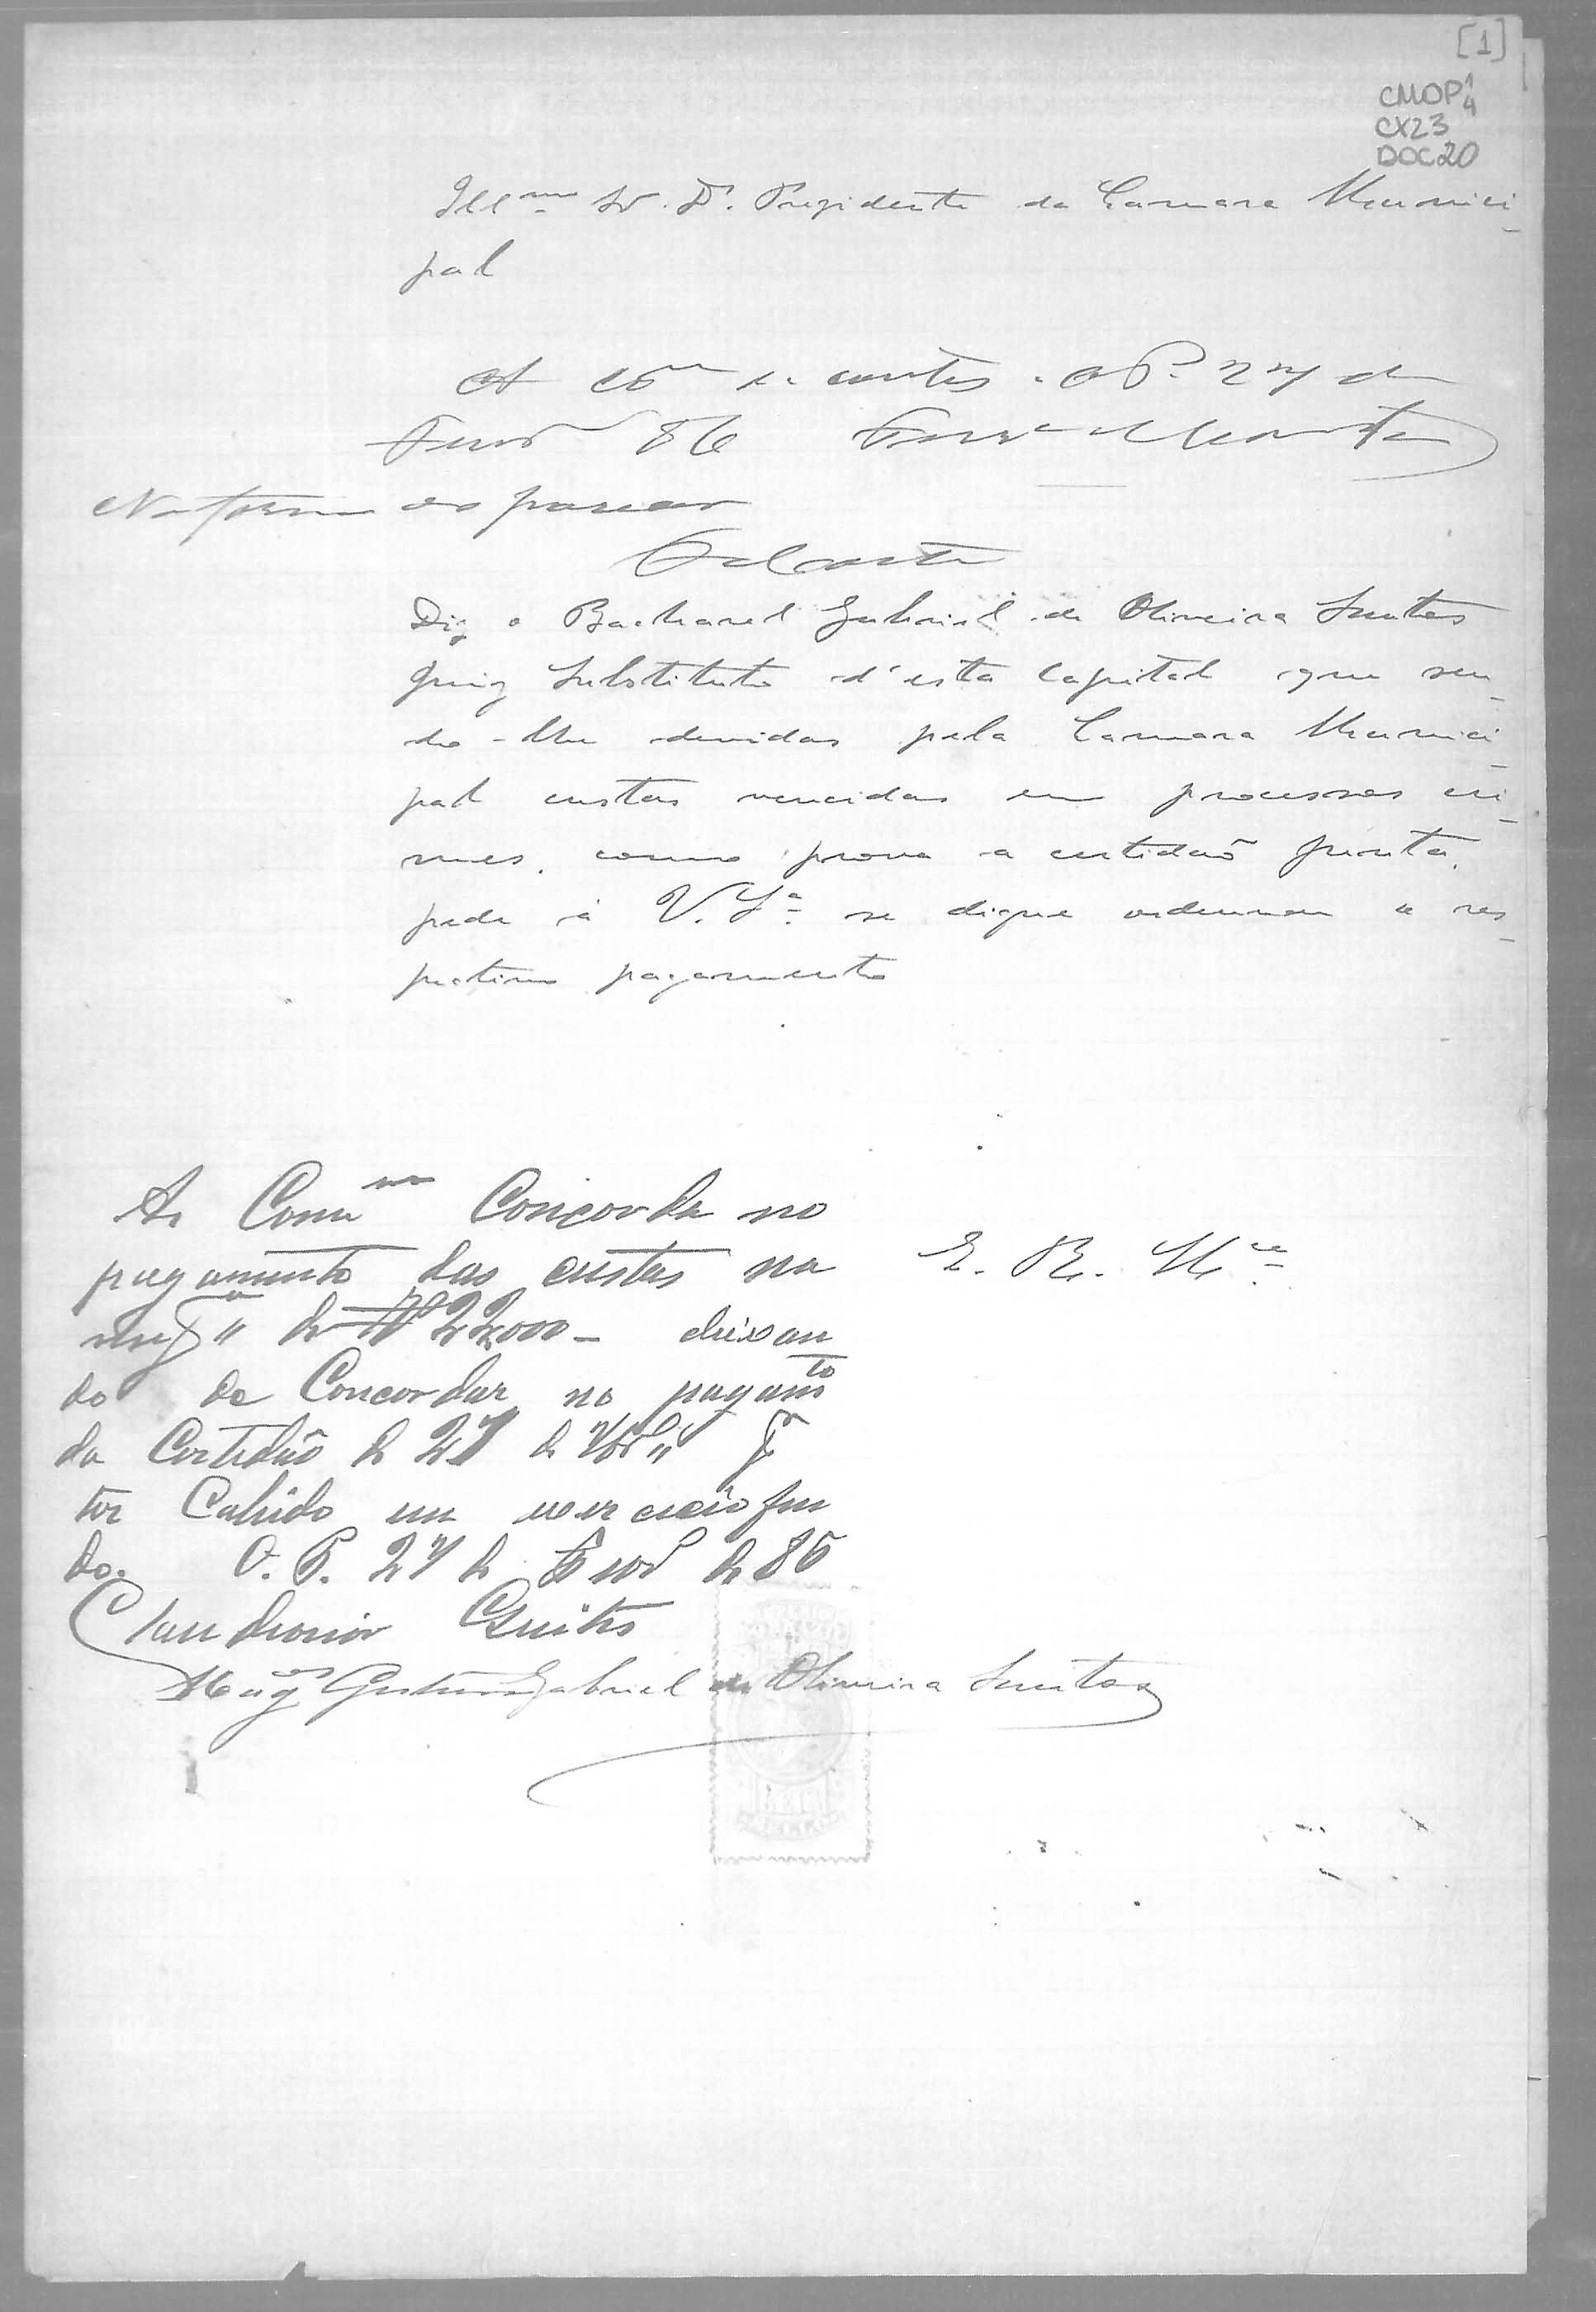 [1]
CMOP 1/4
CX23
DOC20
Illmo Sr. Dr. Prezidente da Camara Munici-
pal
A Com de contas. O P. 27 de
Fevro 86
Na forma do parecer
Diz o Bacharel Gabriel de Oliveira Santos
Juiz Substituto d'esta Capital que sen-
do-lhe devidas pela Camara Munici-
pal custas vencidas em processos cri-
mes, como prova a certidaõ junta,
pede á V. Sa se digne ordenar o res-
pectivo pagamento
E. R. Mce
A Comam Concorda no
pagamento das custas na
de 22,000 - deixan
do de Concordar no pagamto
da Certidão de 27 de
ter Cahido em exercicio fin
do. O. P. 27 de Fevro de 86
Claudionor Quites
Gabriel de Oliveira Santos